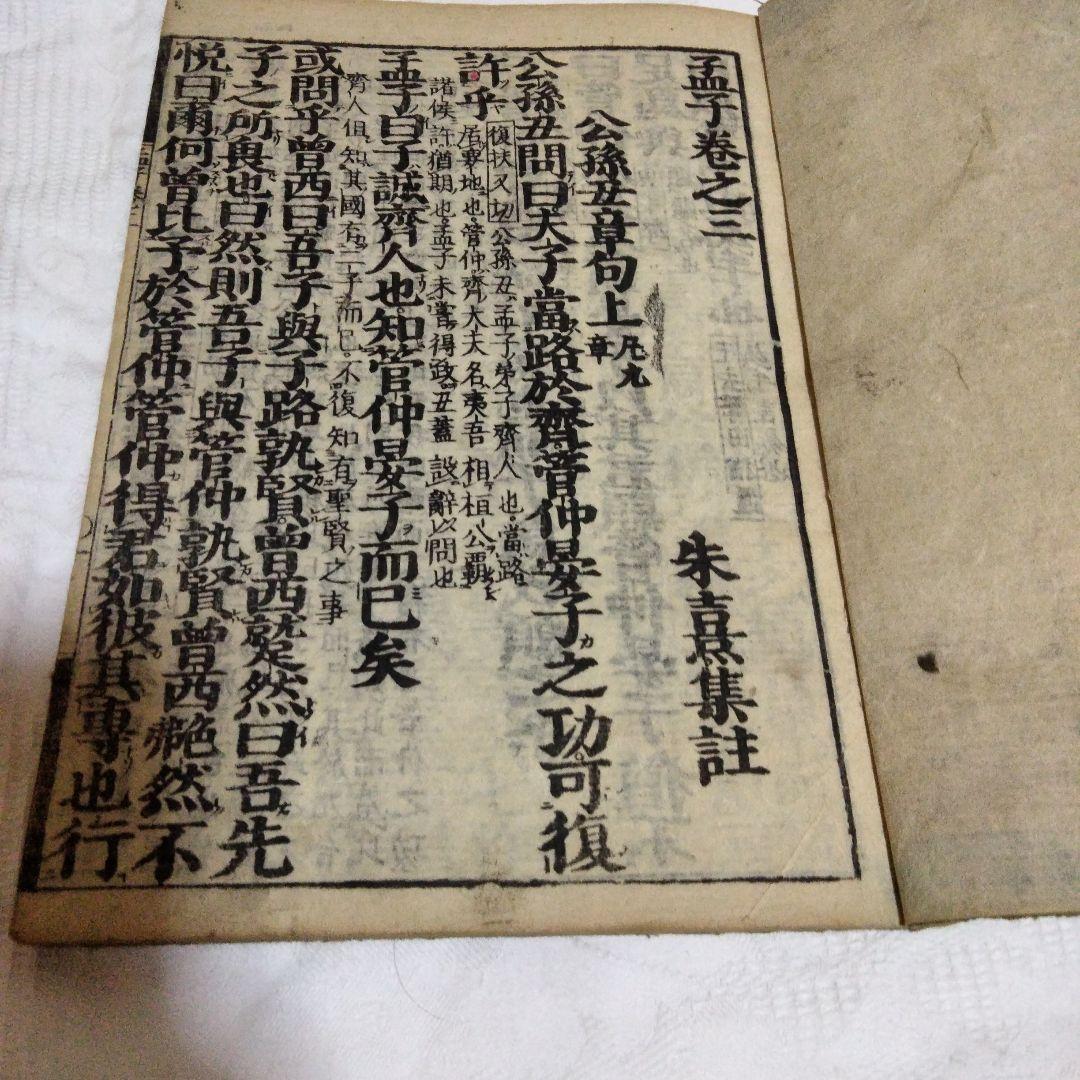 孟子卷之三
朱熹集註
公孫丑章句上 凡九章
公孫丑問曰夫子當路於齊管仲晏子之功可復
許乎
復扶又切 公孫丑孟子弟子齊人也當路
居要地也管仲齊大夫名夷吾相桓公霸
諸侯許猶期也孟子未嘗得政丑蓋設辭以問也
孟子曰子誠齊人也知管仲晏子而已矣
齊人但知其國有二子而已不復知有聖賢之事
或問乎曾西曰吾子與子路孰賢曾西蹵然曰吾先
子之所畏也曰然則吾子與管仲孰賢曾西艴然不
悦曰爾何曾比予於管仲管仲得君如彼其專也行